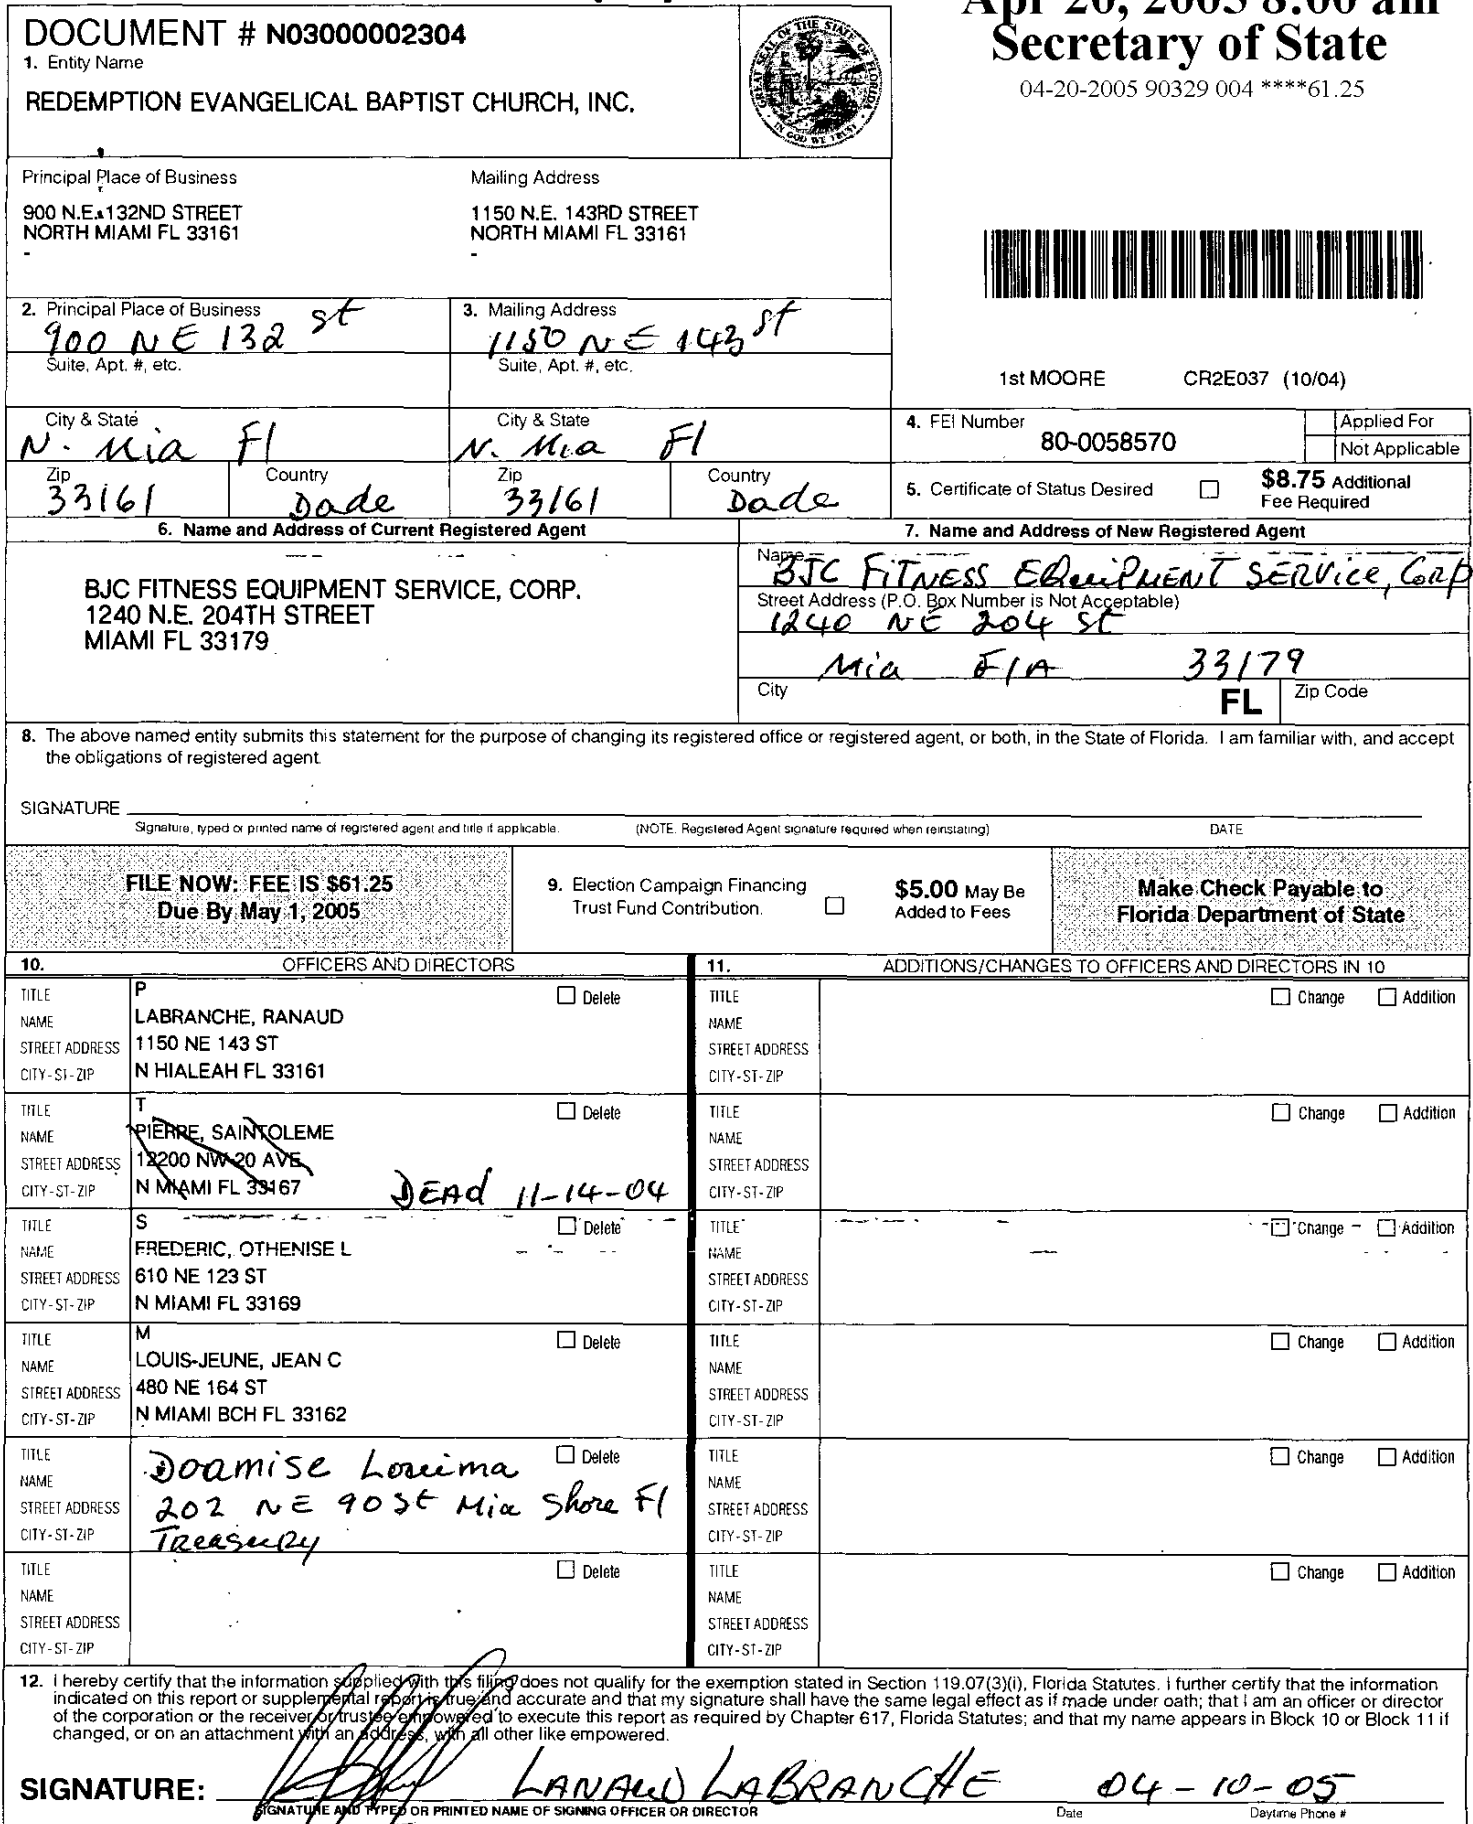 Apr 20, 2005 8:00 am
Secretary of State
04-20-2005 90329 004 ****61.25
DOCUMENT # N03000002304
1. Entity Name
REDEMPTION EVANGELICAL BAPTIST CHURCH, INC.
GREAT SEAL OF THE STATE OF FLORIDA
IN GOD WE TRUST
Principal Place of Business
900 N.E. 132ND STREET
NORTH MIAMI FL 33161
-
Mailing Address
1150 N.E. 143RD STREET
NORTH MIAMI FL 33161
-
2. Principal Place of Business
900 NE 132 st
Suite, Apt. #, etc.
3. Mailing Address
1150 NE 143 st
Suite, Apt. #, etc.
1st MOORE CR2E037 (10/04)
City & State
N. Mia Fl
City & State
N. Mia Fl
Zip
33161
Country
Dade
Zip
33161
Country
Dade
4. FEI Number
80-0058570
Applied For
Not Applicable
5. Certificate of Status Desired
$8.75 Additional
Fee Required
6. Name and Address of Current Registered Agent
BJC FITNESS EQUIPMENT SERVICE, CORP.
1240 N.E. 204TH STREET
MIAMI FL 33179
7. Name and Address of New Registered Agent
Name
BJC FITNESS EQuiPMENT SERVice, Corp
Street Address (P.O. Box Number is Not Acceptable)
1240 NE 204 St
Mia FlA 33179
City
FL
Zip Code
8. The above named entity submits this statement for the purpose of changing its registered office or registered agent, or both, in the State of Florida. I am familiar with, and accept
the obligations of registered agent.
SIGNATURE
Signature, typed or printed name of registered agent and title if applicable.
(NOTE. Registered Agent signature required when reinstating)
DATE
FILE NOW: FEE IS $61.25
Due By May 1, 2005
9. Election Campaign Financing
Trust Fund Contribution.
$5.00 May Be
Added to Fees
Make Check Payable to
Florida Department of State
10. OFFICERS AND DIRECTORS
11. ADDITIONS/CHANGES TO OFFICERS AND DIRECTORS IN 10
TITLE P Delete
NAME LABRANCHE, RANAUD
STREET ADDRESS 1150 NE 143 ST
CITY-ST-ZIP N HIALEAH FL 33161
TITLE Change Addition
NAME
STREET ADDRESS
CITY-ST-ZIP
TITLE T Delete
NAME PIERRE, SAINTOLEME
STREET ADDRESS 12200 NW 20 AVE
CITY-ST-ZIP N MIAMI FL 33167 DEAd 11-14-04
TITLE Change Addition
NAME
STREET ADDRESS
CITY-ST-ZIP
TITLE S Delete
NAME FREDERIC, OTHENISE L
STREET ADDRESS 610 NE 123 ST
CITY-ST-ZIP N MIAMI FL 33169
TITLE Change Addition
NAME
STREET ADDRESS
CITY-ST-ZIP
TITLE M Delete
NAME LOUIS-JEUNE, JEAN C
STREET ADDRESS 480 NE 164 ST
CITY-ST-ZIP N MIAMI BCH FL 33162
TITLE Change Addition
NAME
STREET ADDRESS
CITY-ST-ZIP
TITLE Delete
NAME Doamise Louima
STREET ADDRESS 202 NE 90 St Mia Shore Fl
CITY-ST-ZIP Treasury
TITLE Change Addition
NAME
STREET ADDRESS
CITY-ST-ZIP
TITLE Delete
NAME
STREET ADDRESS
CITY-ST-ZIP
TITLE Change Addition
NAME
STREET ADDRESS
CITY-ST-ZIP
12. I hereby certify that the information supplied with this filing does not qualify for the exemption stated in Section 119.07(3)(i), Florida Statutes. I further certify that the information
indicated on this report or supplemental report is true and accurate and that my signature shall have the same legal effect as if made under oath; that I am an officer or director
of the corporation or the receiver or trustee empowered to execute this report as required by Chapter 617, Florida Statutes; and that my name appears in Block 10 or Block 11 if
changed, or on an attachment with an address, with all other like empowered.
SIGNATURE: LANAUD LABRANCHE 04-10-05
SIGNATURE AND TYPED OR PRINTED NAME OF SIGNING OFFICER OR DIRECTOR
Date
Daytime Phone #